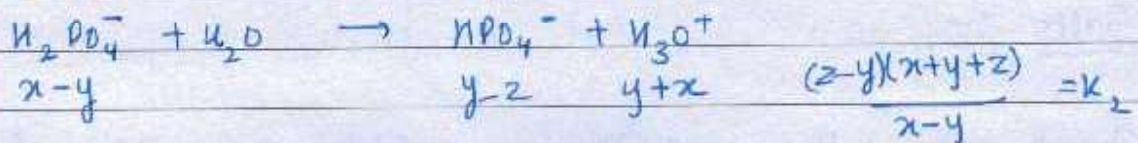 H₂PO₄⁻ + H₂O → HPO₄⁻ + H₃O⁺
x-y y-z y+x (z-y)(x+y+z)/(x-y) = K₂